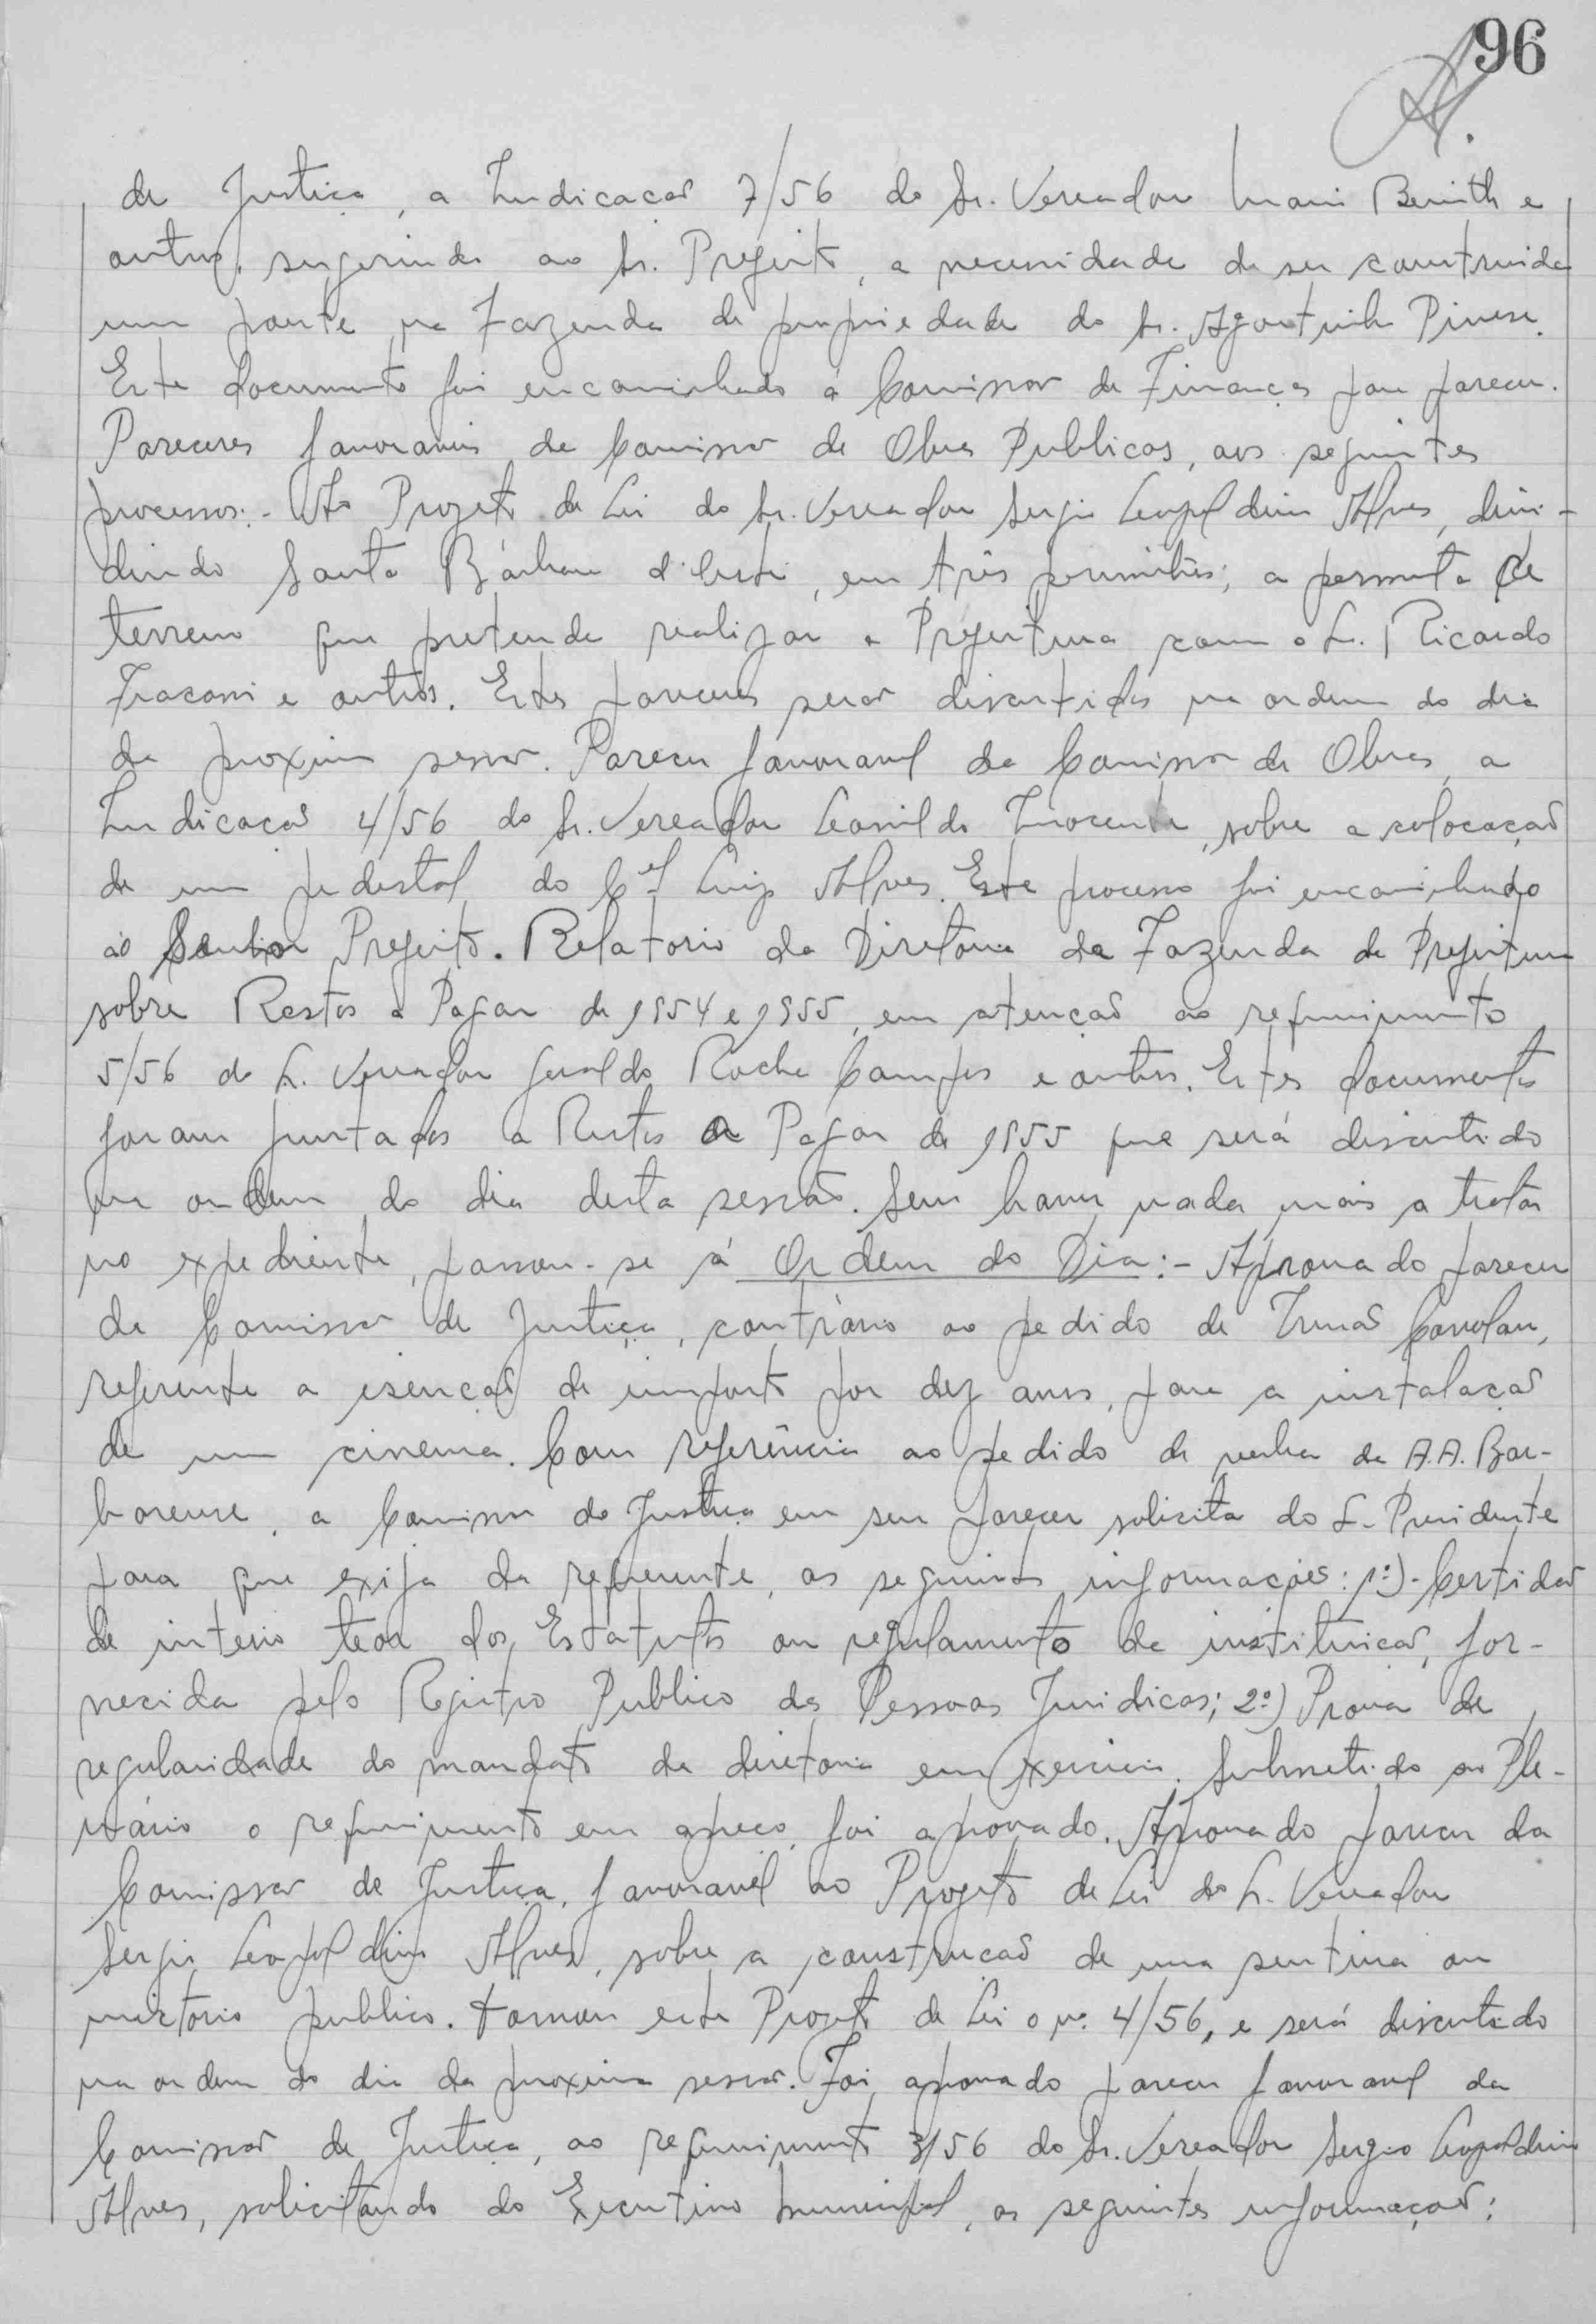 96
de Justiça, a Indicacão 7/56 do Sr. Vereador Benith e
outros, sugerindo ao Sr. Prefeito, a necessidade de ser construida
um ponte na Fazenda de propriedade do Sr. Agostinho Pinese.
Este documento foi encaminhado á Comissão de Finanças para parecer.
Pareceres favoraveis da Comissão de Obras Publicas, aos seguintes
processos:- Ao Projeto de Lei do Sr. Vereador Sergio Leopoldino Alves, divi-
dindo Santa Bárbara d'Oeste, em três perimetros; a permuta de
terreno que pretende realizar a Prefeitura com o Sr. Ricardo
Fracassi e outros. Estes pareceres serão discutidos na ordem do dia
da proxima sessão. Parecer favoravel da Comissão de Obras, a
Indicacão 4/56 do Sr. Vereador Leonildo Inocente, sobre a colocação
de um pedestal do Cel Luiz Alves. Este processo foi encaminhado
ao Senhor Prefeito. Relatorio da Diretoria da Fazenda da Prefeitura
sobre Restos a Pagar de 1954 e 1955, em atenção ao requerimento
5/56 do Sr. Vereador Geraldo Rocha Campos e outros. Estes documentos
foram juntados a Restos a Pagar de 1955 que será discutido
na ordem do dia desta sessão. Sem haver nada mais a tratar
no expediente, passou-se á Ordem do Dia:- Aprovado parecer
da Comissão de Justiça, contrário ao pedido de Irmãos Covolan,
referente a isenção de imposto por dez anos, para a instalação
de um cinema. Com referência ao pedido de verba da A.A. Bar-
barense, a Comissão de Justiça em seu parecer solicita do Sr. Presidente
para que exija da requerente, as seguintes informações: 1º)- Certidão
de inteiro teor dos Estatutos ou regulamento da instituicão, for-
necida pelo Registro Publico das Pessoas Juridicas; 2º) Prova de
regularidade do mandato da diretoria em exercicio. Submetido ao Ple-
nário o requerimento em apreço, foi aprovado. Aprovado parecer da
Comissão de Justiça, favoravel ao Projeto de Lei do Sr. Vereador
Sergio Leopoldino Alves, sobre a construcão de uma sentina ou
mictorio publico. Tomou este Projeto de Lei o nº. 4/56, e será discutido
na ordem do dia da proxima sessão. Foi aprovado parecer favoravel da
Comissão de Justiça, ao requerimento 3/56 do Sr. Vereador Sergio Leopoldino
Alves, solicitando do Executivo Municipal, as seguintes informações: